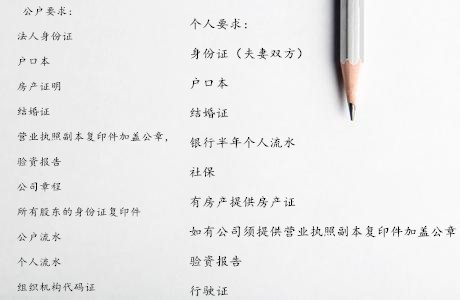 公户要求：
法人身份证
户口本
房产证明
结婚证
营业执照副本复印件加盖公章，
验资报告
公司章程
所有股东的身份证复印件
公户流水
个人流水
组织机构代码证
个人要求：
身份证（夫妻双方）
户口本
结婚证
银行半年个人流水
社保
有房产提供房产证
如有公司须提供营业执照副本复印件加盖公章
验资报告
行驶证